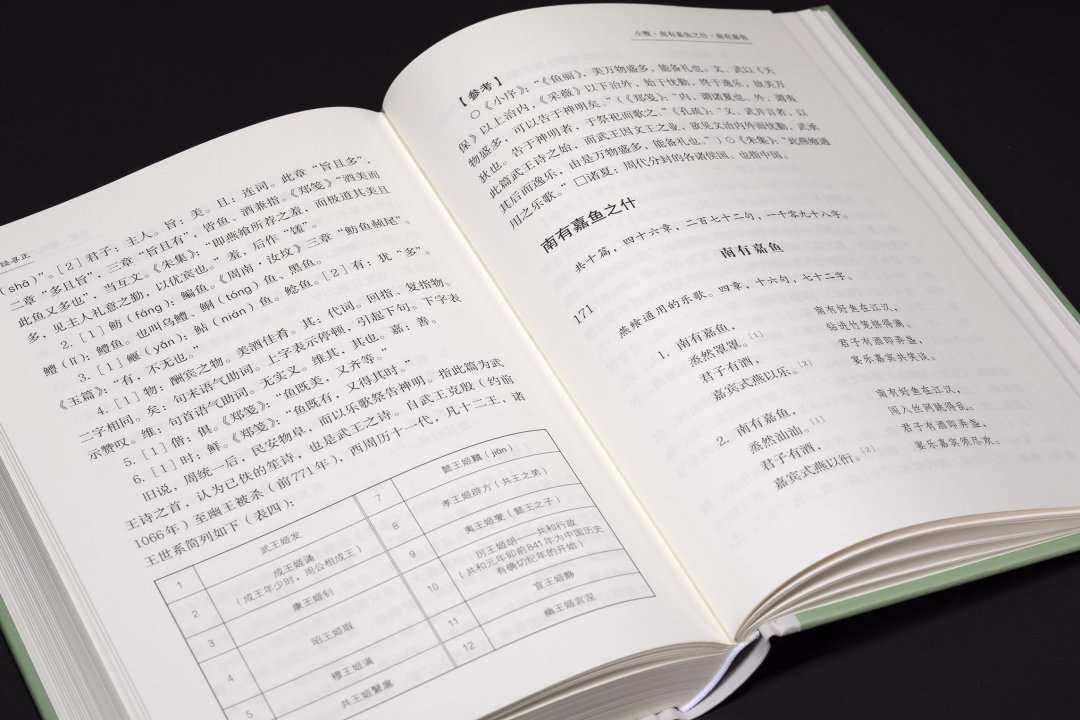 经寻正
（shā）”。［2］君子：主人。旨：美。且：连词。此章“旨且多”，
二章“多且旨”，三章“旨且有”，皆鱼、酒兼指。《郑笺》“酒美而
此鱼又多也”，当互文。《朱集》：“即燕飨所荐之羞，而极道其美且
多，见主人礼意之勤，以优宾也。”羞，后作“馐”。
2.［1］鲂（fáng）：鳊鱼。《周南·汝坟》三章“鲂鱼赪尾”。
鳢（lǐ）：鳢鱼。也叫乌鳢、鲖（tóng）鱼、黑鱼。
3.［1］鰋（yǎn）：鲇（nián）鱼。鲶鱼。［2］有：犹“多”。
《玉篇》：“有，不无也。”
4.［1］物：酬宾之物。美酒佳肴。其：代词。回指、复指物。
二字相同。矣：句末语气助词。上字表示停顿，引起下句。下字表
示赞叹。维：句首语气助词。无实义。维其，其也。嘉：善。
5.［1］偕：俱。《郑笺》：“鱼既美，又齐等。”
6.［1］时：鲜。《郑笺》：“鱼既有，又得其时。”
旧说，周统一后，民安物阜，而以乐歌祭告神明。指此篇为武
王诗之首，认为已佚的笙诗，也是武王之诗。自武王克殷（约前
1066年）至幽王被杀（前771年），西周历十一代，凡十二王，诸
王世系简列如下（表四）：
1 武王姬发
2 成王姬诵
（成王年少时，周公相成王）
3 康王姬钊
4 昭王姬瑕
5 穆王姬满
共王姬繄扈
7 懿王姬囏（jiān）
8 孝王姬辟方（共王之弟）
9 夷王姬燮（懿王之子）
10 厉王姬胡——共和行政
（共和元年即前841年为中国历史
有确切纪年的开始）
11 宣王姬静
12 幽王姬宫涅
小雅·南有嘉鱼之什·南有嘉鱼
【参考】
○《小序》：“《鱼丽》，美万物盛多，能备礼也。文、武以《天
保》以上治内，《采薇》以下治外，始于忧勤，终于逸乐，故美万
物盛多，可以告于神明矣。”（《郑笺》：“内，谓诸夏也。外，谓夷
狄也。告于神明者，于祭祀而歌之。”《孔疏》：“文、武并言者，以
此篇武王诗之始，而武王因文王之业，欲见文治内外而忧勤，武承
其后而逸乐，由是万物盛多，能备礼也。”）○《朱集》：“此燕飨通
用之乐歌。”□诸夏：周代分封的各诸侯国。也指中国。
南有嘉鱼之什
共十篇，四十六章，二百七十二句，一千零九十八字。
南有嘉鱼
171
燕飨通用的乐歌。四章，十六句，七十二字。
1. 南有嘉鱼，
烝然罩罩。［1］
君子有酒，
嘉宾式燕以乐。［2］
南有好鱼在江汉，
君子有酒即弄盏，
宴乐嘉宾共笑谈。
2. 南有嘉鱼，
烝然汕汕。［1］
君子有酒，
嘉宾式燕以衎。［2］
南有好鱼在江汉，
闯入丝网跳得乱。
君子有酒即弄盏，
宴乐嘉宾须尽欢。